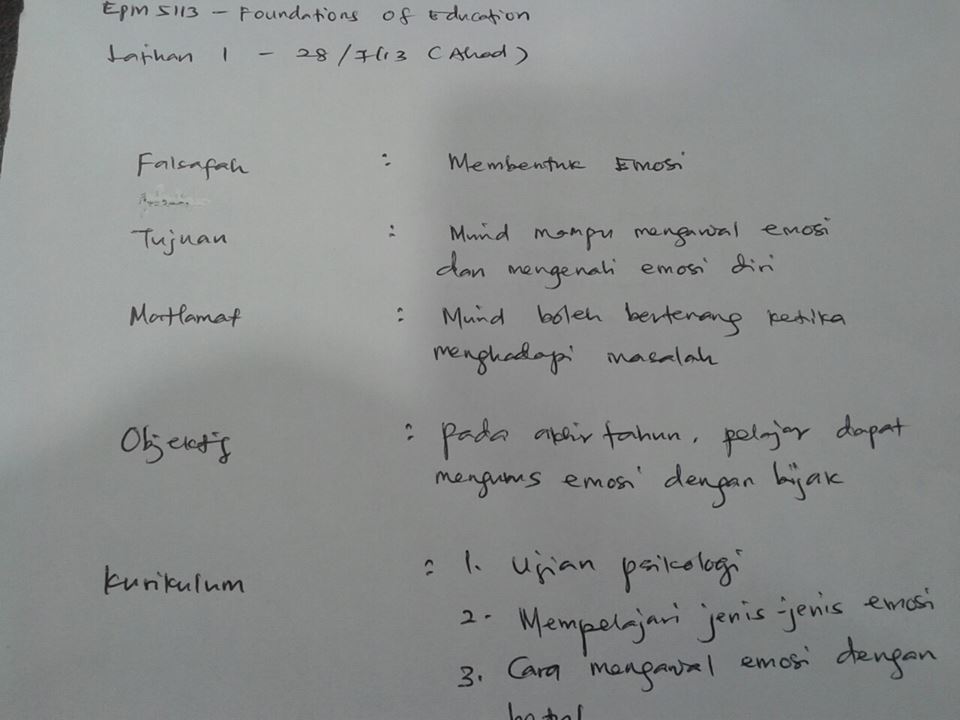 EPM 5113 - Foundations of Education
Latihan 1 - 28/7/13 (Ahad)
Falsafah : Membentuk Emosi
Tujuan : Murid mampu mengawal emosi
dan mengenali emosi diri
Matlamat : Murid boleh bertenang ketika
menghadapi masalah
Objektif : pada akhir tahun, pelajar dapat
mengurus emosi dengan bijak
Kurikulum : 1. Ujian psikologi
2. Mempelajari jenis-jenis emosi
3. Cara mengawal emosi dengan